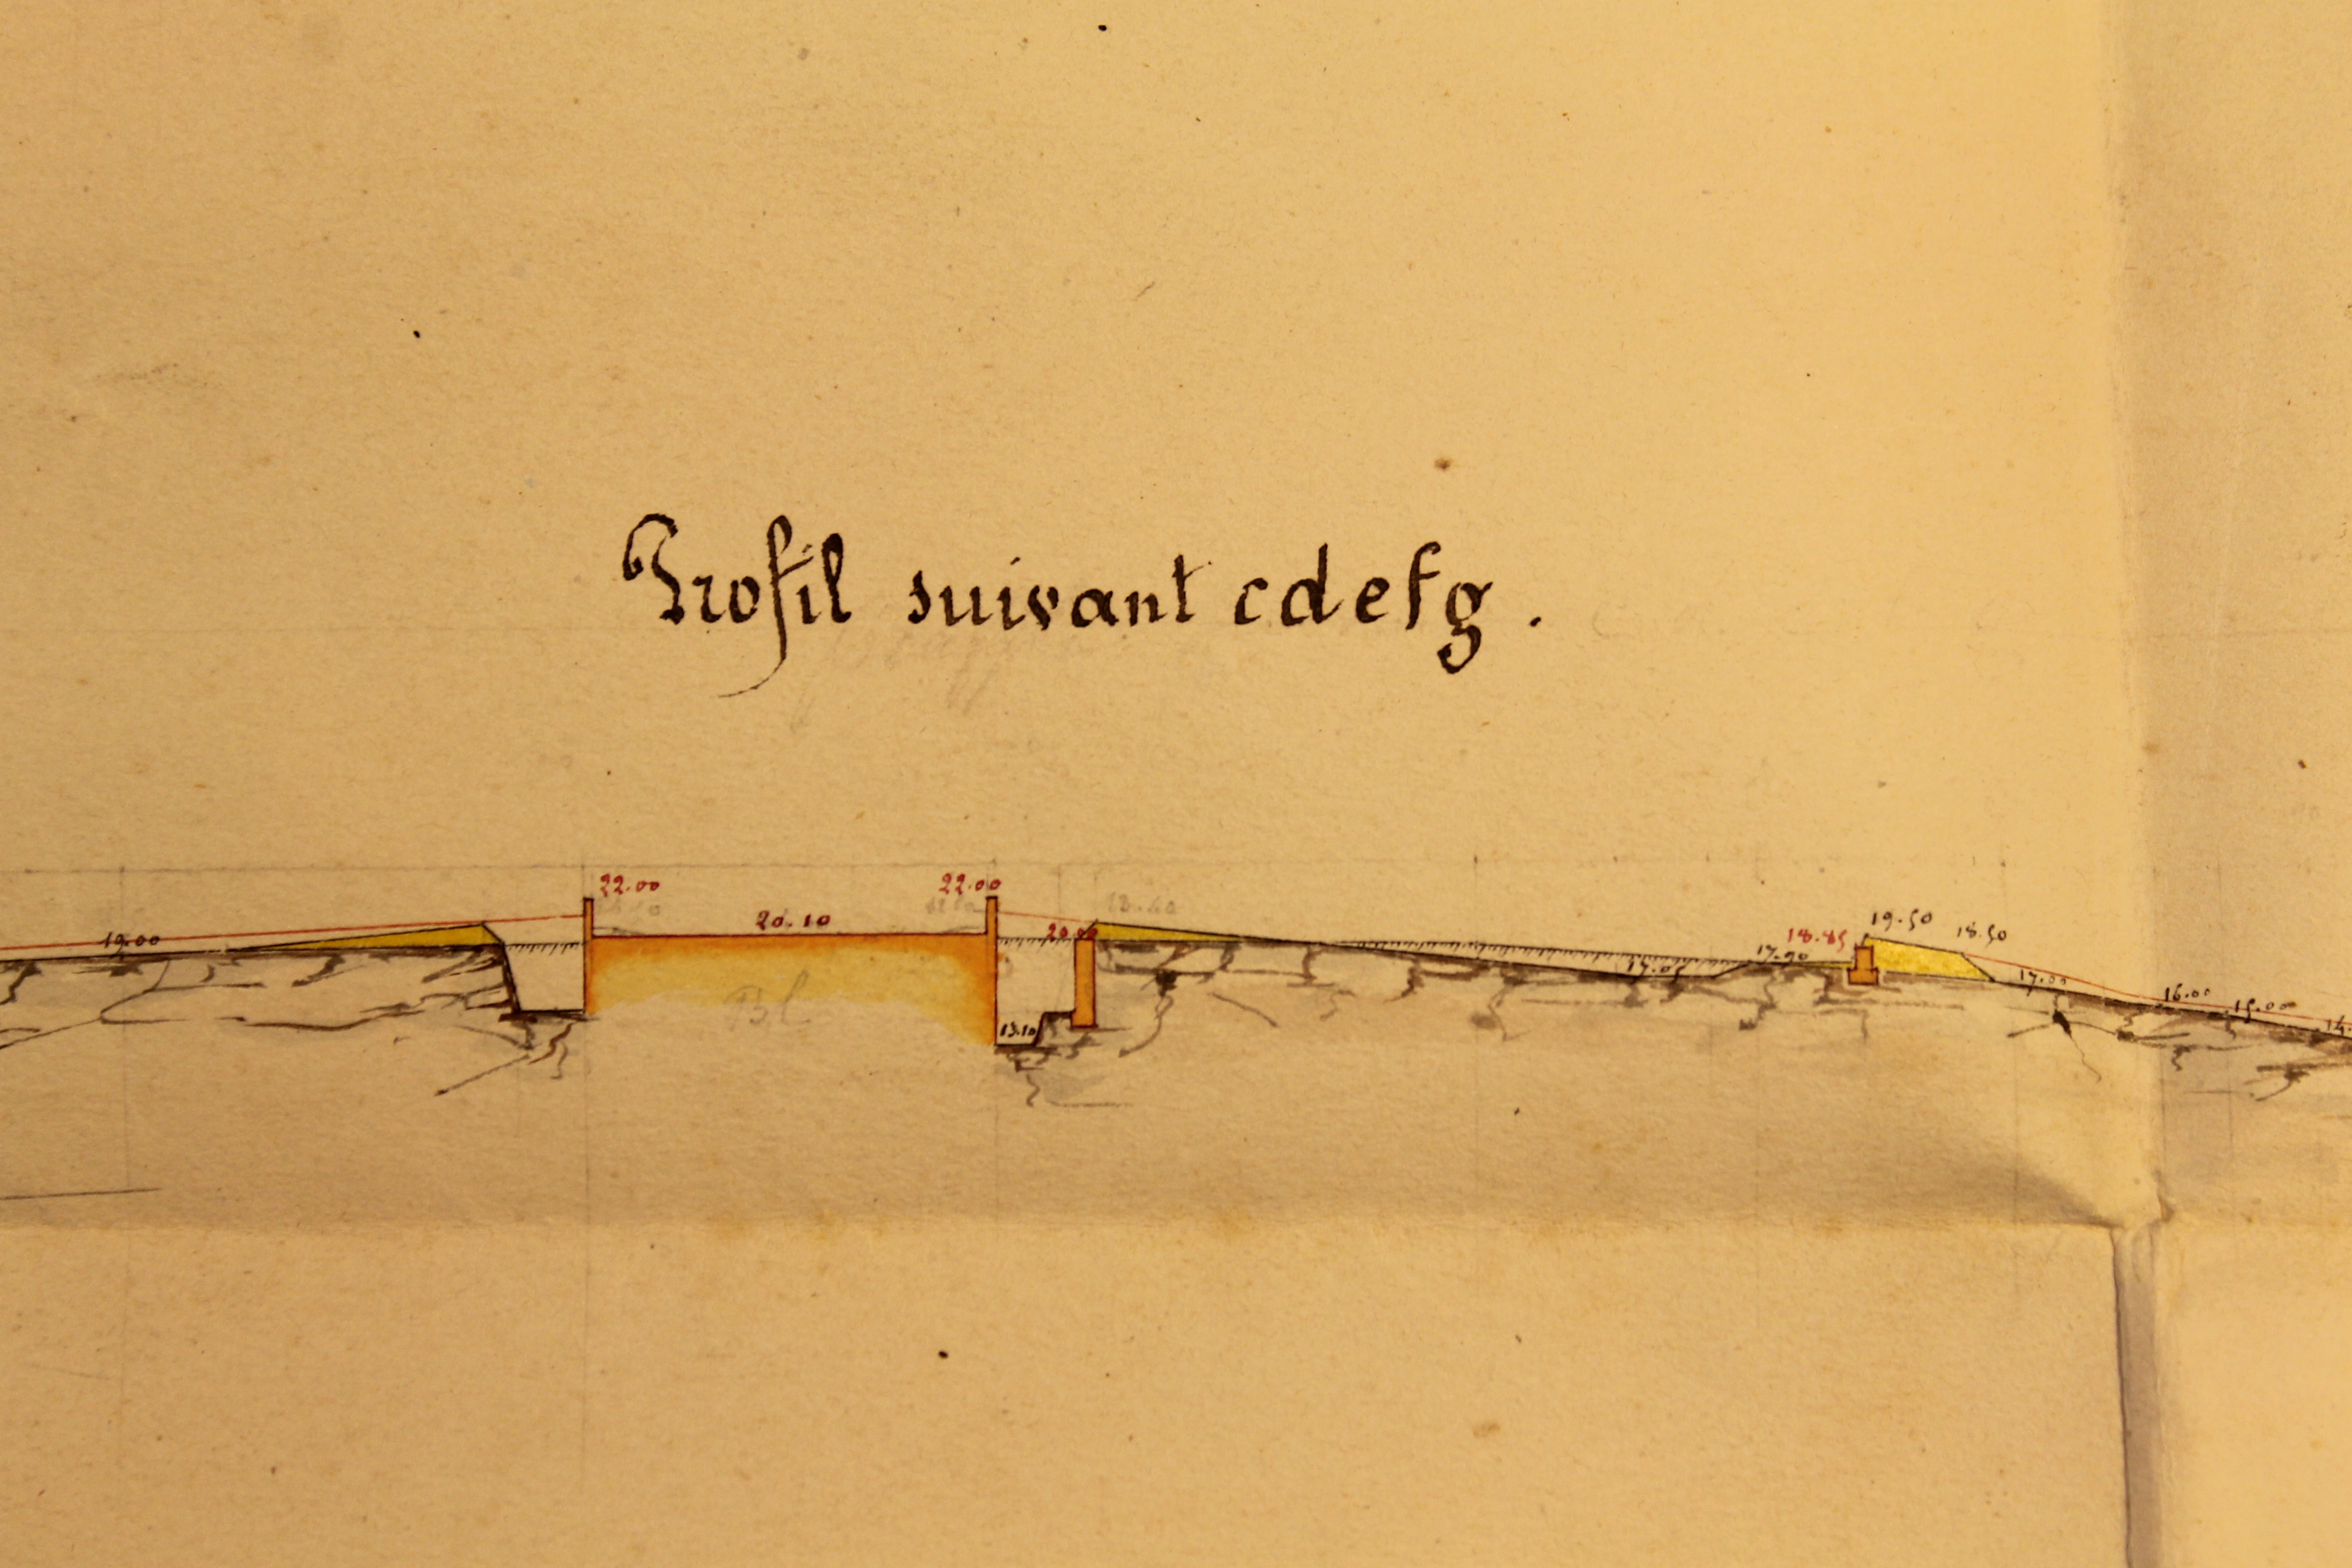 Profil suivant cdefg.
22.00 22.00
20.10
19.00
18.85 19.50 18.50
17.05 17.90 17.00 16.00 15.00